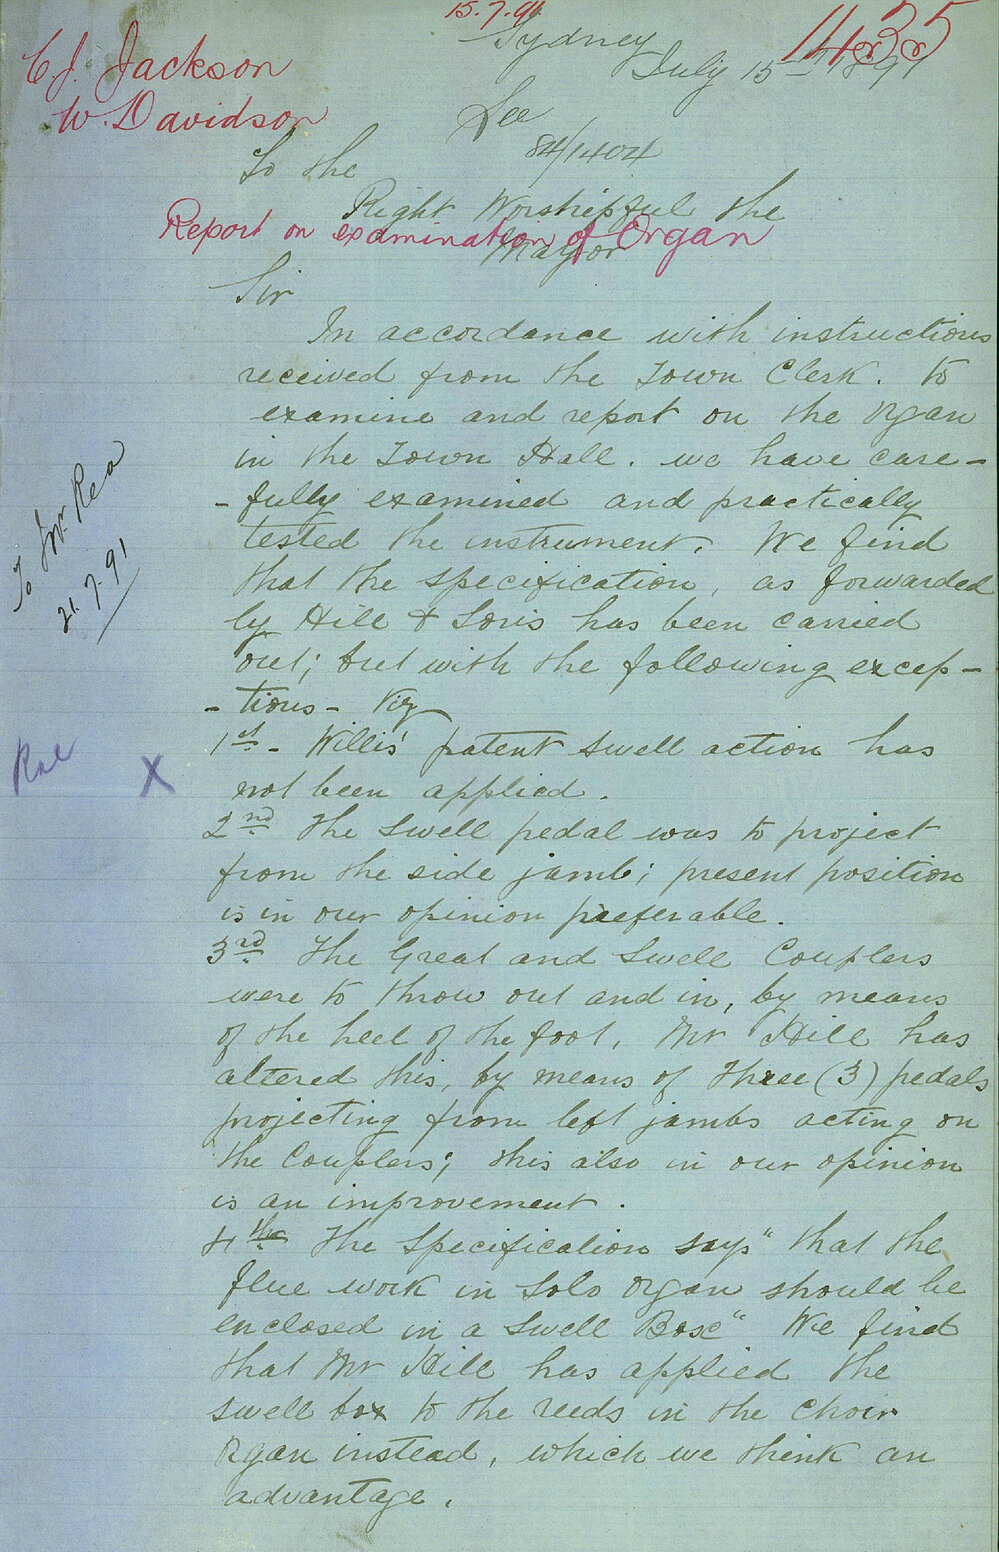 15.7.91
1435
C J. Jackson
W. Davidson
Sydney
July 15th 1891
See
84/1404
To the
Right Worshipful the
Mayor
Report on examination of Organ
Sir
In accordance with instructions
received from the Town Clerk. to
examine and report on the Organ
in the Town Hall. we have care-
-fully examined and practically
tested the instrument. We find
that the specification, as forwarded
by Hill & Sons has been carried
out; but with the following excep-
-tions- Viz
1st- Willis' patent swell action has
not been applied.
2nd The swell pedal was to project
from the side jamb; present position
is in our opinion preferable.
3rd The Great and Swell Couplers
were to throw out and in, by means
of the heel of the foot, Mr Hill has
altered this, by means of three (3) pedals
projecting from left jambs acting on
the Couplers; this also in our opinion
is an improvement.
4th The Specification says "that the
flue work in Solo Organ should be
enclosed in a Swell Box" We find
that Mr Hill has applied the
swell box to the reeds in the Choir
Organ instead, which we think an
advantage.
To Mr Rea
21.7.91
X